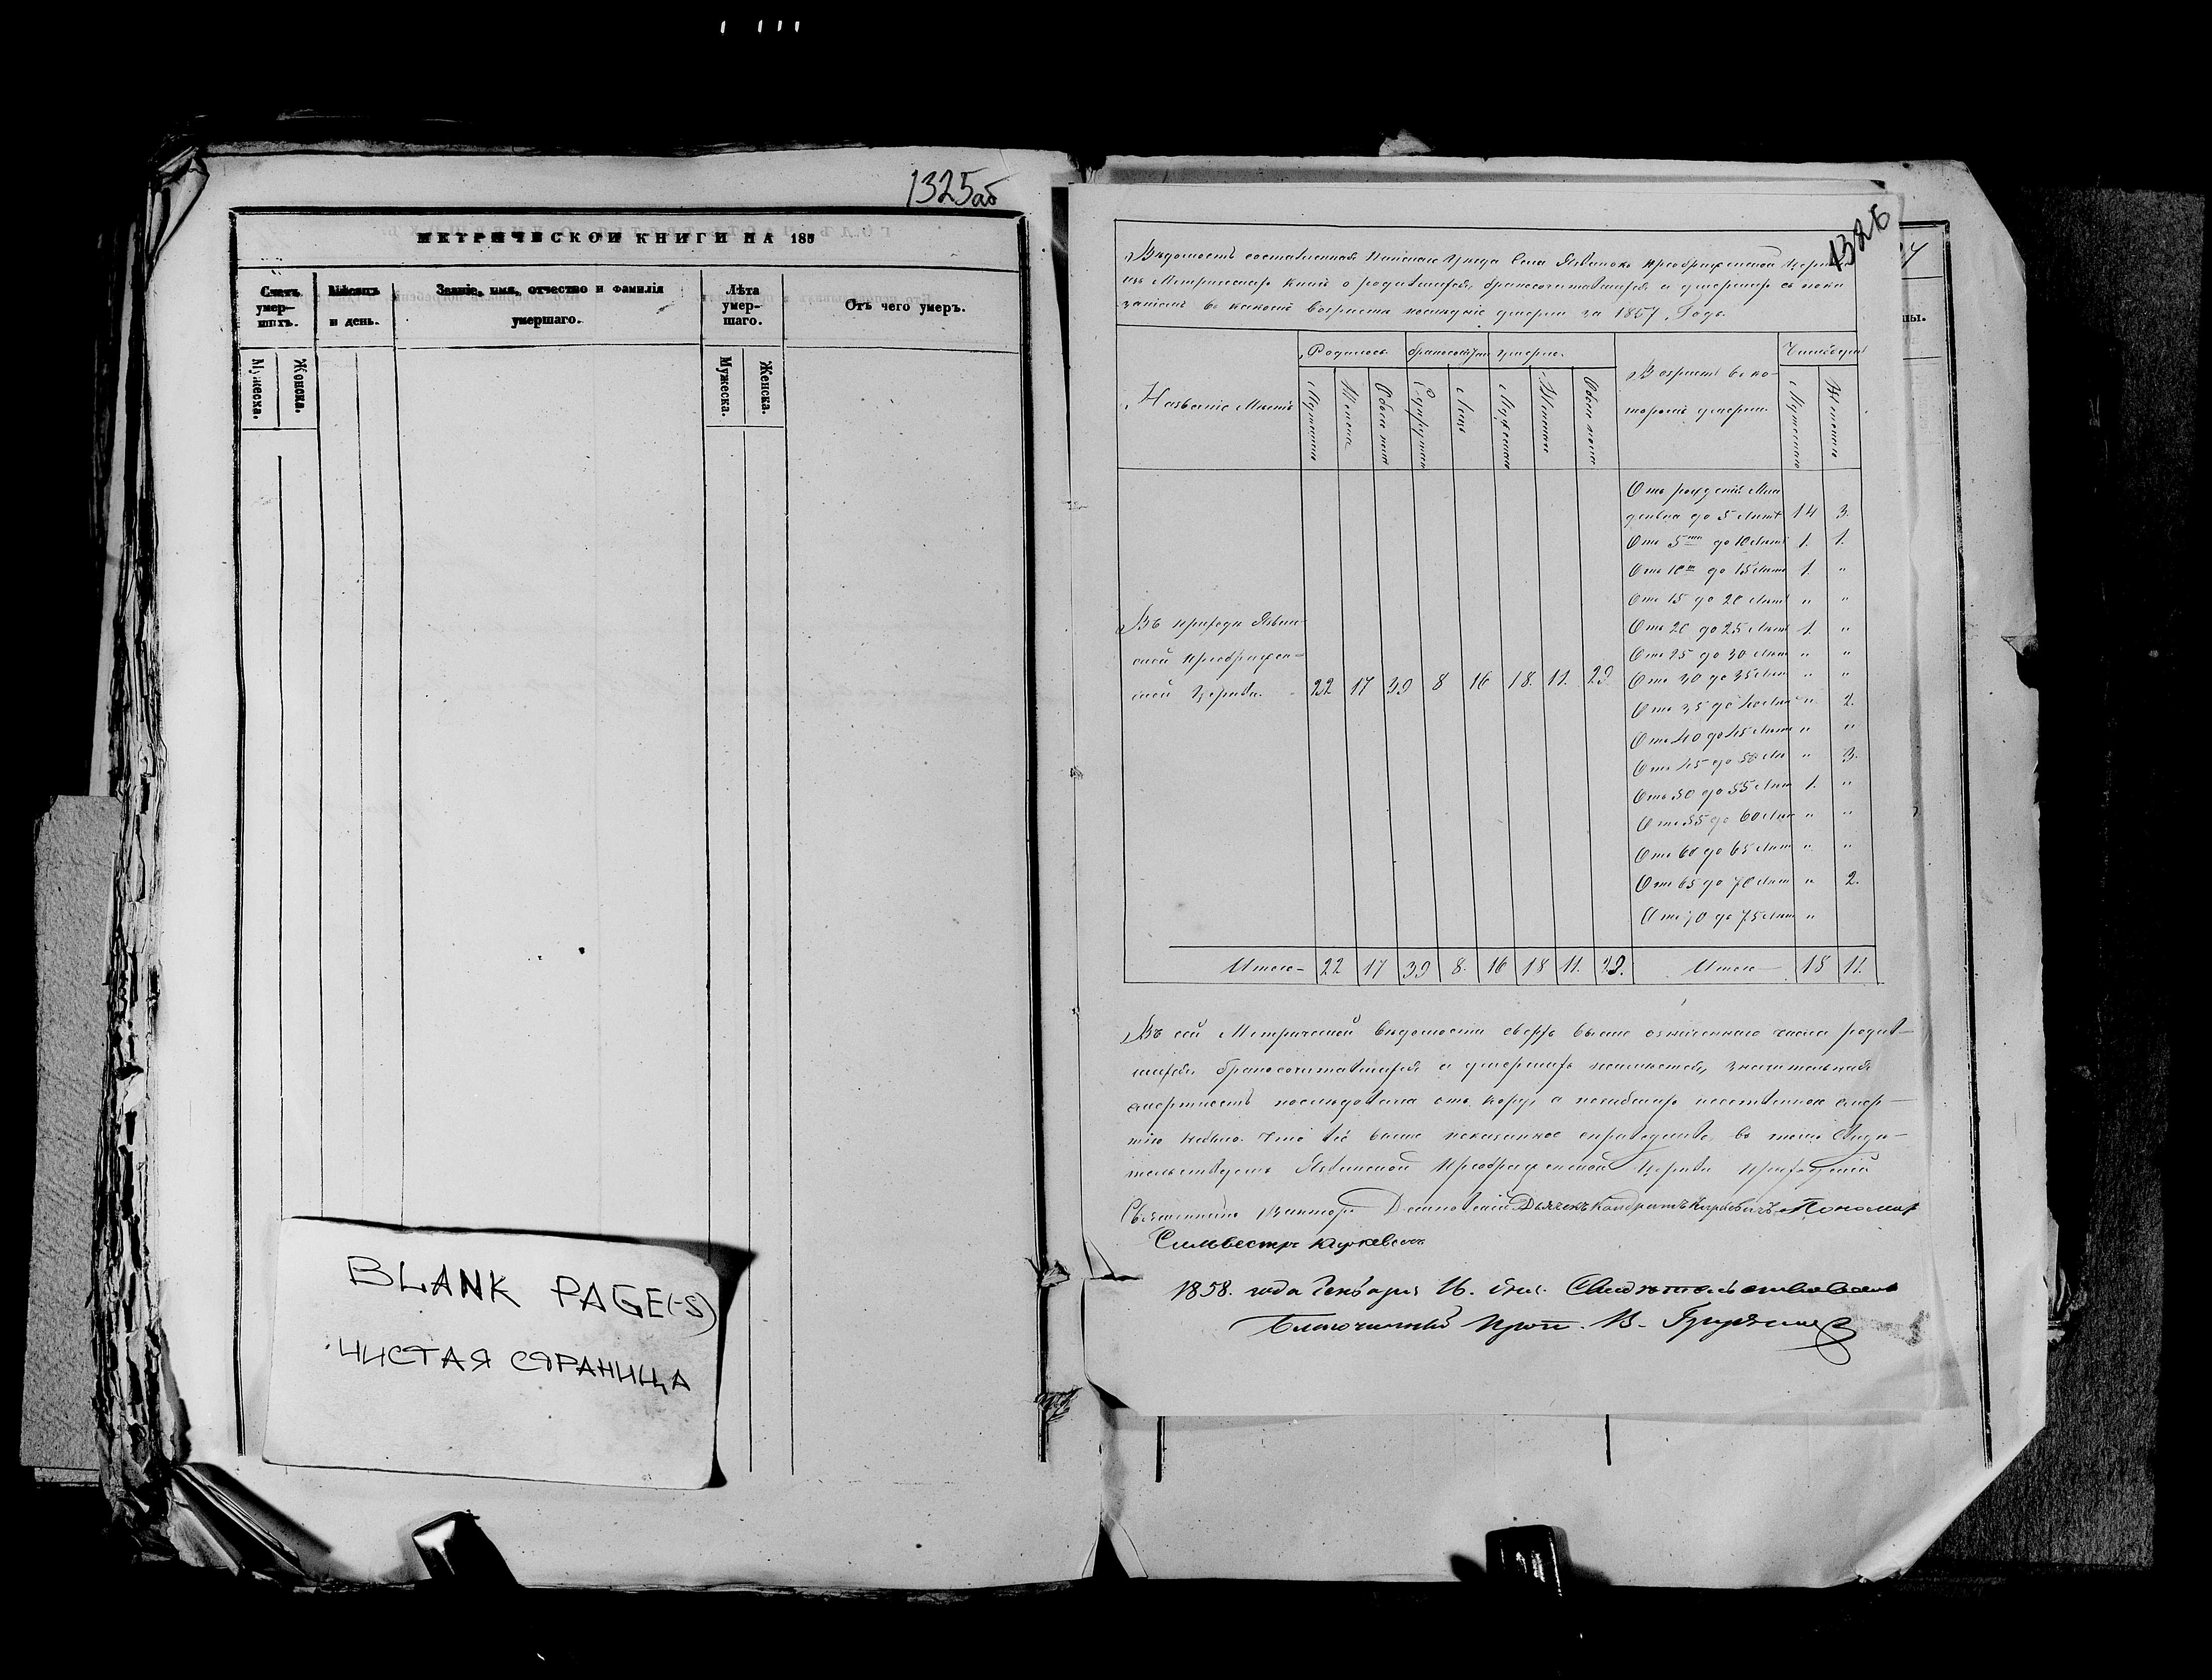 1325об
МЕТРИЧЕСКОЙ КНИГИ НА 185
Счетъ умер-шихъ.
Мѣсяцъ и день.
Званіе, имя, отчество и фамилія умершаго.
Лѣта умер-шаго.
Отъ чего умеръ.
Мужеска.
Женска.
Мужеска.
Женска.
BLANK PAGE(-S)
ЧИСТАЯ СТРАНИЦА
1326
ны.
Вѣдомость составленная уѣзда Села Преображенской Церкви
изъ Метрическихъ книгъ о родившихся, бракосочетавшихся и умершихъ съ пока
заніемъ въ какомъ возрастѣ послѣдніе умерли за 1857 Годъ.
Названіе Мѣстъ
Родилось
Умерло
Возрастъ въ ко-
торомъ умерли
Мужеска
Женска
Обоего пола
Лицъ
Мужеска
Женска
Обоего пола
Мужескаго
Женскаго
Отъ рожденія Мла
денца до 5 Лѣтъ 14 3.
Отъ 5ти до 10 Лѣтъ 1. 1.
Отъ 10ти до 15 Лѣтъ 1. "
Отъ 15 до 20 Лѣтъ " "
Отъ 20 до 25 Лѣтъ 1. "
Отъ 25 до 30 Лѣтъ " "
Отъ 30 до 35 Лѣтъ " "
Отъ 35 до 40 Лѣтъ " 2.
Отъ 40 до 45 Лѣтъ " "
Отъ 45 до 50 Лѣ " 3.
Отъ 50 до 55 Лѣтъ 1. "
Отъ 55 до 60 Лѣт " "
Отъ 60 до 65 Лѣтъ " "
Отъ 65 до 70 Лѣтъ " 2.
Отъ 70 до 75 Лѣтъ "
Въ приходѣ
ской Преображен-
ской Церкви. 22 17 39 8 16 18. 11. 29
Итого - 22 17 39 8. 16 18 11. 29. Итого 18 11.
Въ сей Метрической вѣдомости сверхъ выше означеннаго числа родив-
шихся бракосочетавшихся и умершихъ значительная
смертность послѣдовала отъ кору, а погибшихъ смер-
тію небыло. Что всё выше показанное справедливо, въ томъ свидѣ-
тельствуемъ Преображенской Церкви Приходскій
Священникъ Викторъ Дьячекъ Кондратъ Пономар
Сильвестръ
1858. года Генваря 16. дня. Свидѣтельствовалъ
Благочинный Прот. В.